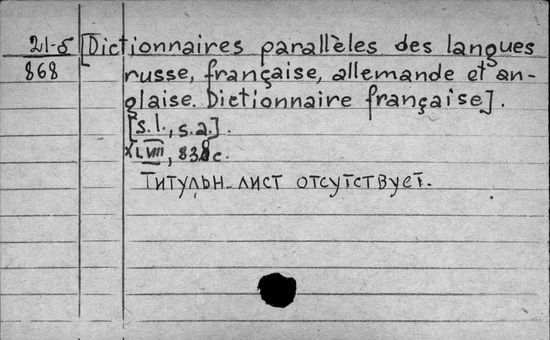 21-5
868
[Dictionnaires parallèles des langues
russe, française, allemande et an-
glaise. Dictionnaire française].
[s.l., s.a.].
XLVIII, 838 c.
Титульн. лист отсутствует.